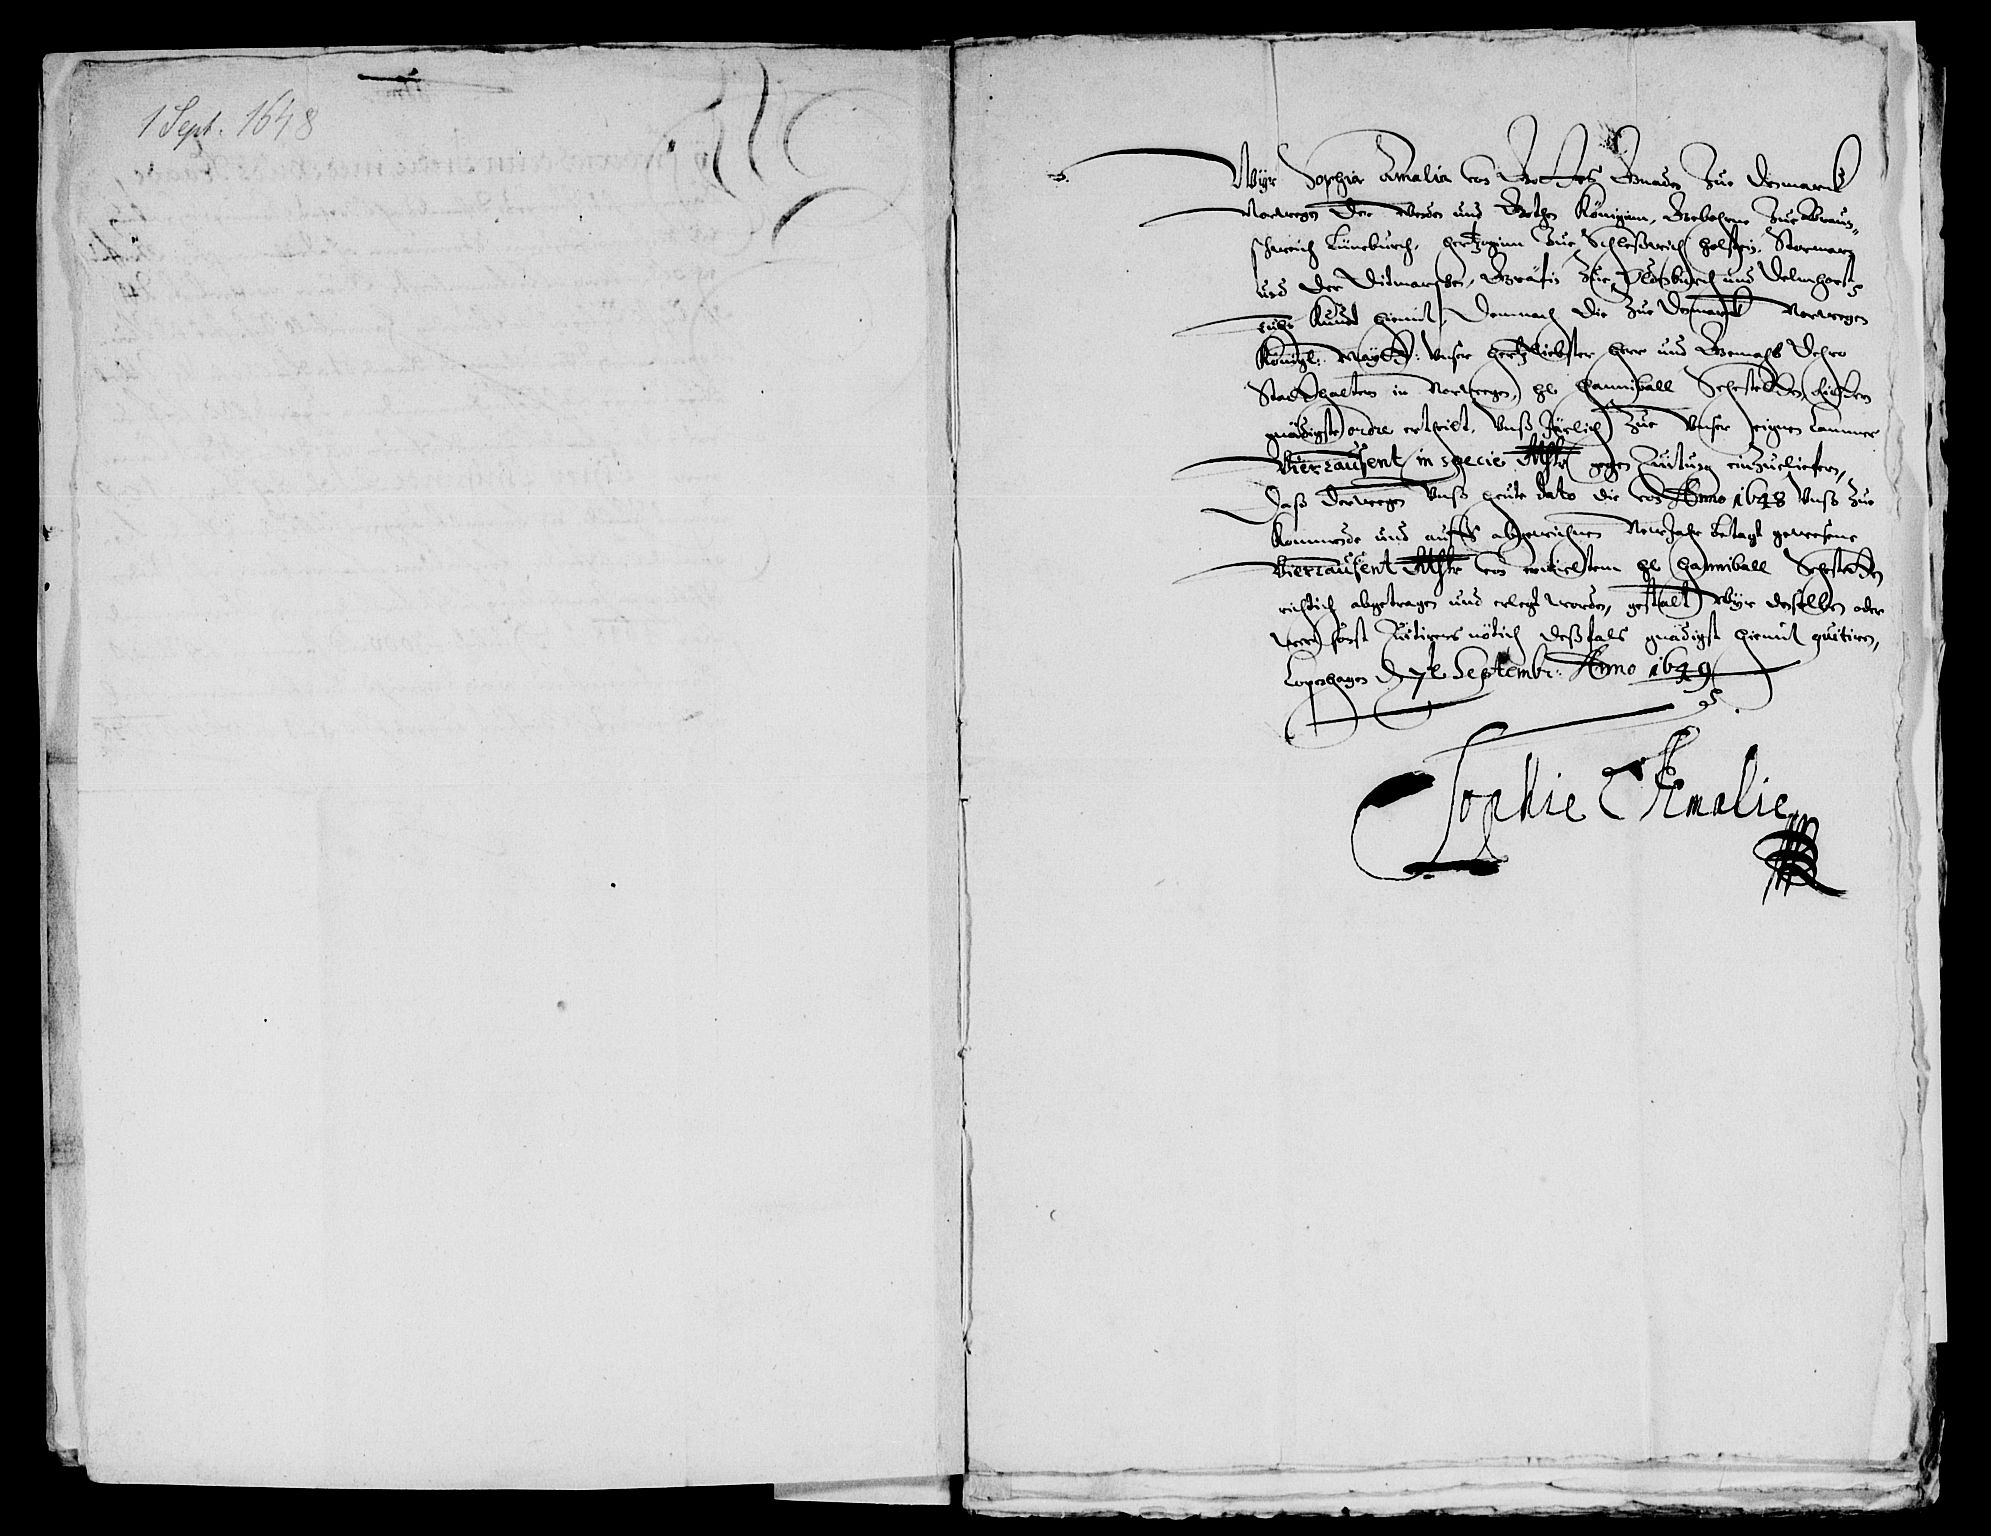 1 Sept. 1648
Wyr Sophia Amalia von Gottes Gnaden Zue Denmarck
Norwegen der Wenden und Gothen Königinn, Gebohrne Zue Braun-
schweich Lüneburch, Hertzoginn Zue Schleßwich Holstein, Stormarn
und der Ditmarschen, Gräfin Zue Oldenburch und Delmenhorst
Kundt hiemit, Demnach die Zue Denmarck Norwegen
Königl: Maytt: Unser Hertzliebster Herr und Gemahl Dehro
Stadthaltern in Norwegen, H. Hanniball Schestedten
gnädigste ordre ertheilt, Unß Järlich Zue Unser eignen Cammer
Viertausent in specie Rthlr gegen Quitung einzueliefern,
Daß derwegen Unß heute dato die von Anno 1648 Unß Zue
Kommende und auffs abgewichnen NeuwJahr betagt gewesene
Viertausent Rthlr von H. Hanniball Schestedten
richtich abgetragen und erlegt worden, gestalt Wyr denselben oder
wehr sonst Quitirens nötich deßfals gnädigst hiemit quitiren,
Copenhagen d 7t Septembr: Anno 1649
Sophie Amalie